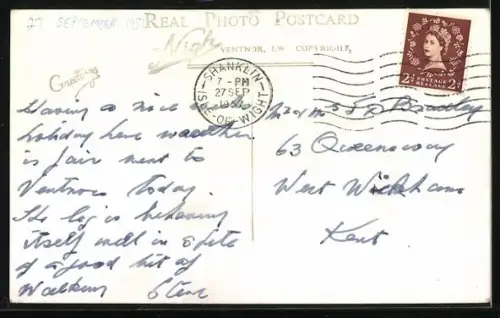 27 SEPTEMBER 195
REAL PHOTO POSTCARD
Nigh
VENTNOR, I.W. COPYRIGHT.
Greetings
SHANKLIN
7 - PM
27 SEP
195
ISLE-OF-WIGHT
2½ POSTAGE REVENUE 2½
Having a nice
holiday here weather
is fair went to
Ventnor today.
The leg is behaving
itself well in spite
of a good bit of
Walking Steve
Mr & Mrs Bradley
63 Queensway
West Wickham
Kent